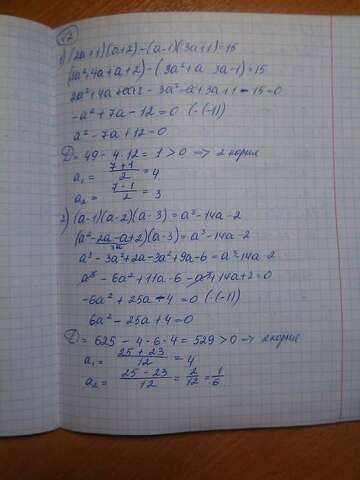 1) (2a+1)(a+2)-(a-1)(3a+1)=15
(2a²+4a+a+2)-(3a²+a 3a-1)=15
2a²+4a+a+2-3a²-a+3a+1-15=0
-a²+7a-12=0 (·(-1))
a²-7a+12=0
D=49-4·12=1>0 => 2 корня
a₁= (7+1)/2 =4
a₂= (7-1)/2 = 3
2) (a-1)(a-2)(a-3)=a³-14a-2
(a²-2a-a+2)(a-3)=a³-14a-2
a³-3a²+2a-3a²+9a-6=a³-14a-2
a³-6a²+11a-6-a³+14a+2=0
-6a²+25a-4=0 (·(-1))
6a²-25a+4=0
D=625-4·6·4=529>0 => 2 корня
a₁= (25+23)/12 = 4
a₂= (25-23)/12 = 2/12 = 1/6